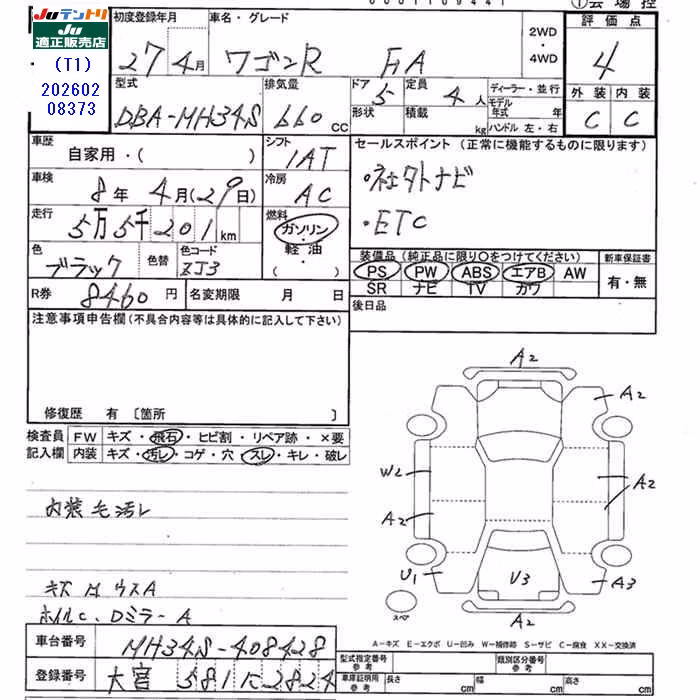 0001109441
①会場控
Juテントリ
JU適正販売店
(T1)
202602
08373
初度登録年月 車名・グレード 2WD・4WD 評価点
27年4月 ワゴンR FA 4
型式 排気量 ドア 定員 ディーラー・並行 外装 内装
DBA-MH34S 660cc 5 4人 モデル年式 年 C C
形状 積載 kg ハンドル 左・右
車歴 自家用・( ) シフト 1AT セールスポイント (正常に機能するものに限ります)
車検 8年4月(29日) 冷房 AC ・社外ナビ
走行 5万5千201km 燃料 ガソリン・軽油・( ) ・ETC
色 ブラック 色替 色コード ZJ3
装備品 (純正品に限り○をつけてください) 新車保証書
PS PW ABS エアB AW 有・無
SR ナビ TV カワ
R券 8460円 名変期限 月 日 後日品
注意事項申告欄(不具合内容等は具体的に記入して下さい)
修復歴 有 〔箇所 〕
検査員記入欄 FW キズ・飛石・ヒビ割・リペア跡・×要
内装 キズ・汚レ・コゲ・穴・スレ・キレ・破レ
内装毛汚レ
キズ
ホイルC、DミラーA
A2
A2
W2
A2
A2
U1
V3
A3
スペア
A2
A-キズ E-エクボ U-凹み W-補修跡 S-サビ C-腐食 XX-交換済
車台番号 MH34S-408428
登録番号 大宮 581 に 2824
型式指定番号 参考 類別区分番号 参考
車庫証明用 参考 長さ cm 幅 cm 高さ cm